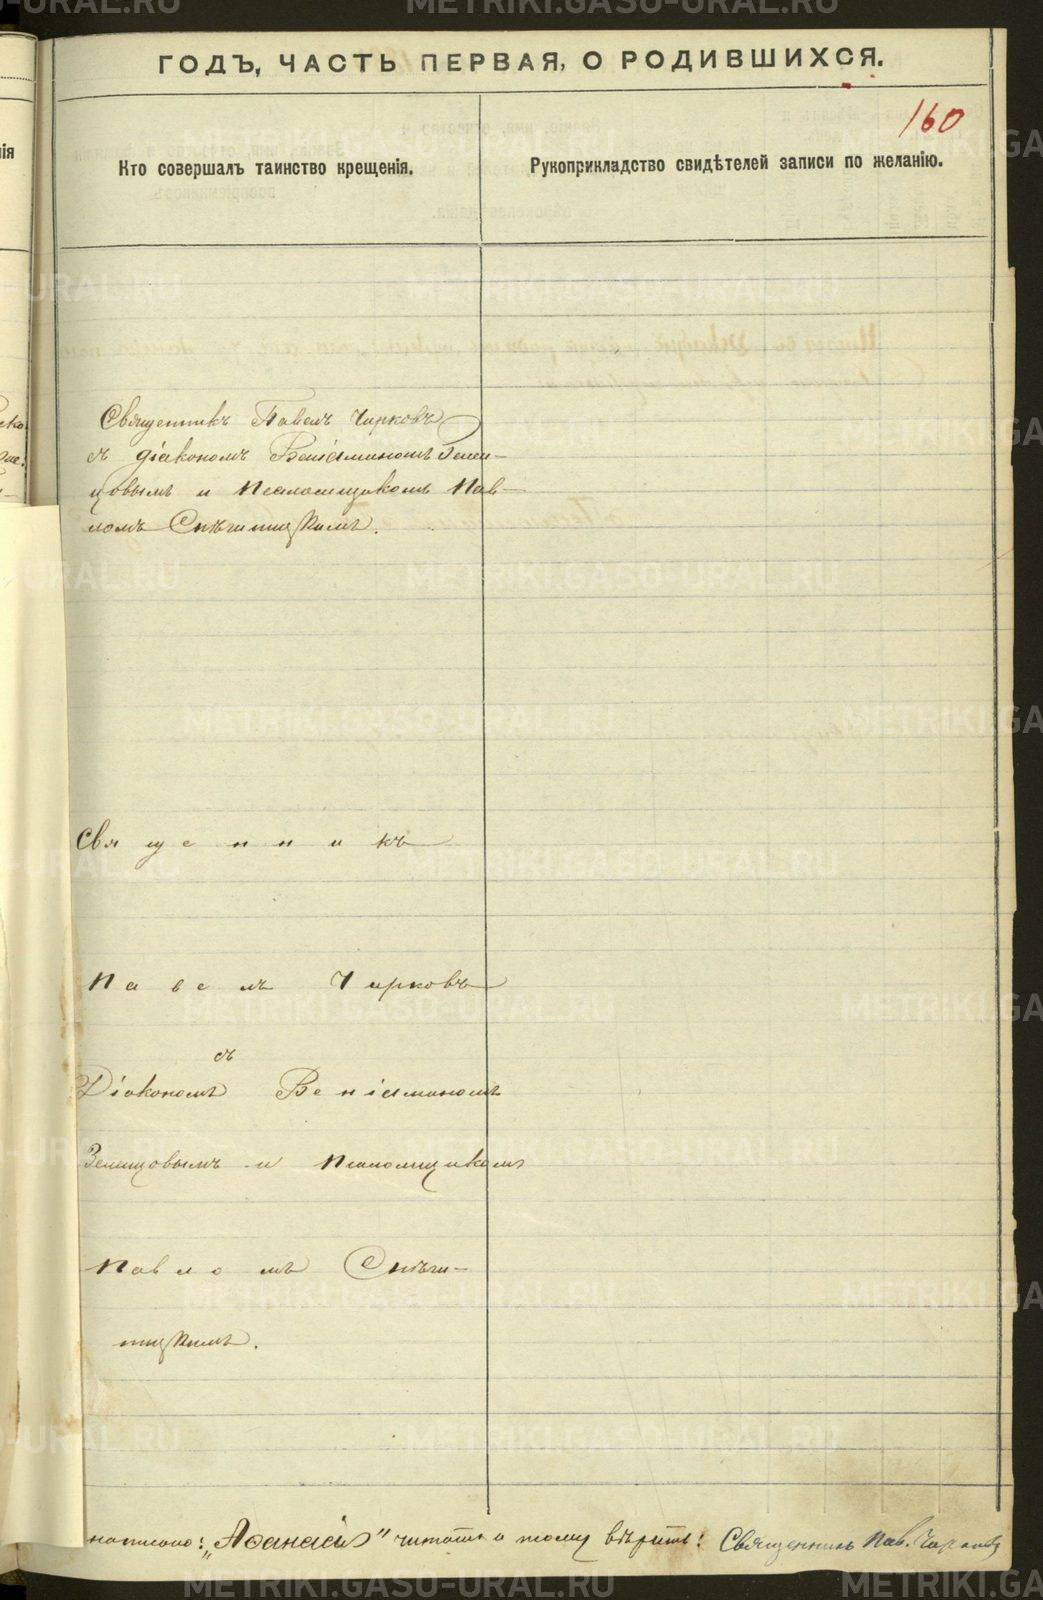 ГОДЪ, ЧАСТЬ ПЕРВАЯ, О РОДИВШИХСЯ.
160
Кто совершалъ таинство крещенія.
Рукоприкладство свидѣтелей записи по желанію.
Священникъ Павелъ Чирковъ
съ діакономъ Веніаминомъ Зелен-
цовымъ и Псаломщикомъ Пав-
ломъ Снѣгитцкимъ.
Священникъ
Павелъ Чирковъ
съ
Діакономъ Веніаминомъ
Зеленцовымъ и Псаломщикомъ
Павломъ Снѣги-
тцкимъ.
написано: „Аѳанасій" читать и тому вѣрить: Священникъ Пав. Чирковъ
METRIKI.GASO-URAL.RU